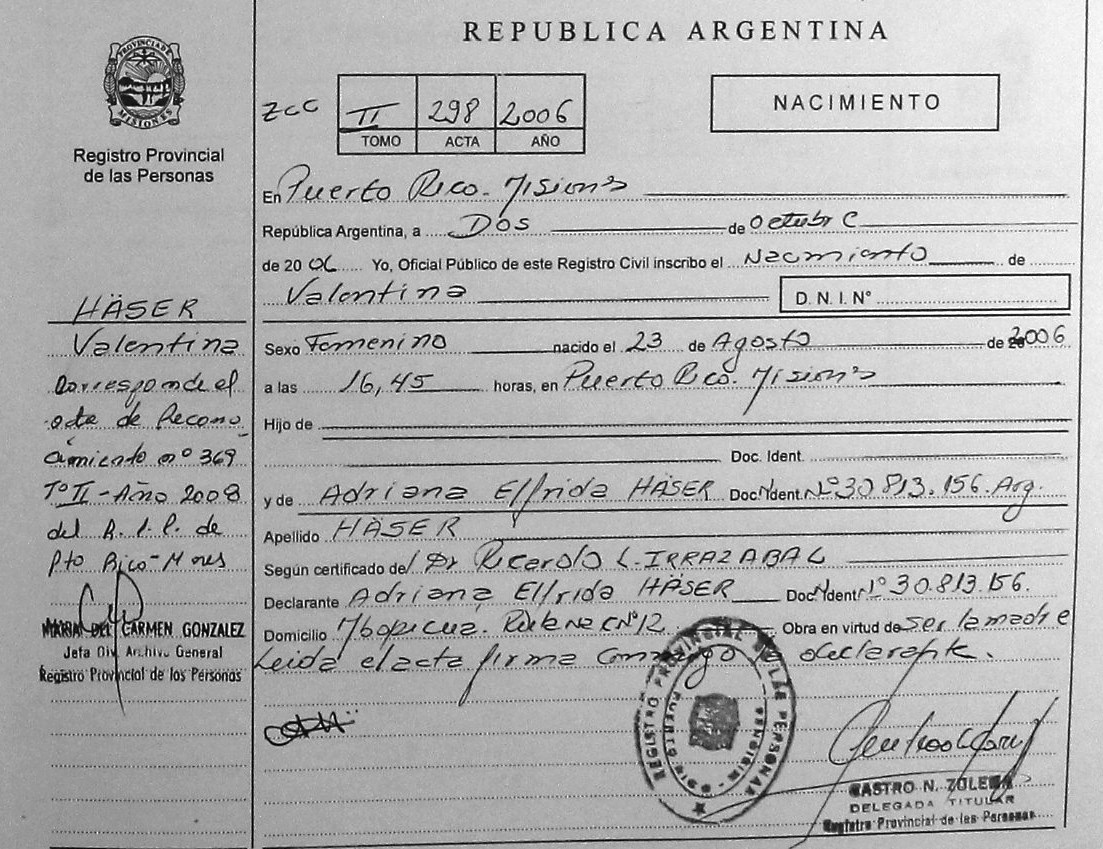 REPUBLICA ARGENTINA
PROVINCIA DE MISIONES
Registro Provincial
de las Personas
zcc II 298 2006
TOMO ACTA AÑO
NACIMIENTO
En Puerto Rico. Misiones
República Argentina, a Dos de octubre
de 2006 Yo, Oficial Público de este Registro Civil inscribo el Nacimiento de
Valentina D.N.I.Nº
Sexo Femenino nacido el 23 de Agosto de 2006
a las 16,45 horas, en Puerto Rico. Misiones
Hijo de
Doc. Ident.
y de Adriana Elfrida HÄSER Doc. Ident. Nº 30.813.156. Arg.
Apellido HÄSER
Según certificado de/ Dr Ricardo L. IRRAZABAL
Declarante Adriana Elfrida HÄSER Doc. Ident. Nº 30.813.156.
Domicilio Mbopicua. Ruta Nac Nº 12 Obra en virtud de ser la madre
Leida el acta firma conmigo la declarante.
HÄSER
Valentina
Corresponde el
acta de Recono
cimiento nº 369
Tº II - Año 2008
del R. de
Pto Rico - Mnes
MARIA DEL CARMEN GONZALEZ
Jefa Div. Archivo General
Registro Provincial de las Personas
REGISTRO PROVINCIAL DE LAS PERSONAS
CASTRO N. ZULEMA
DELEGADA TITULAR
Registro Provincial de las Personas